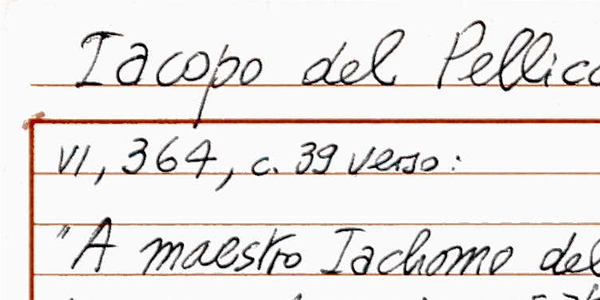 Iacopo del Pellicc
VI, 364, c. 39 verso:
"A maestro Iachomo del